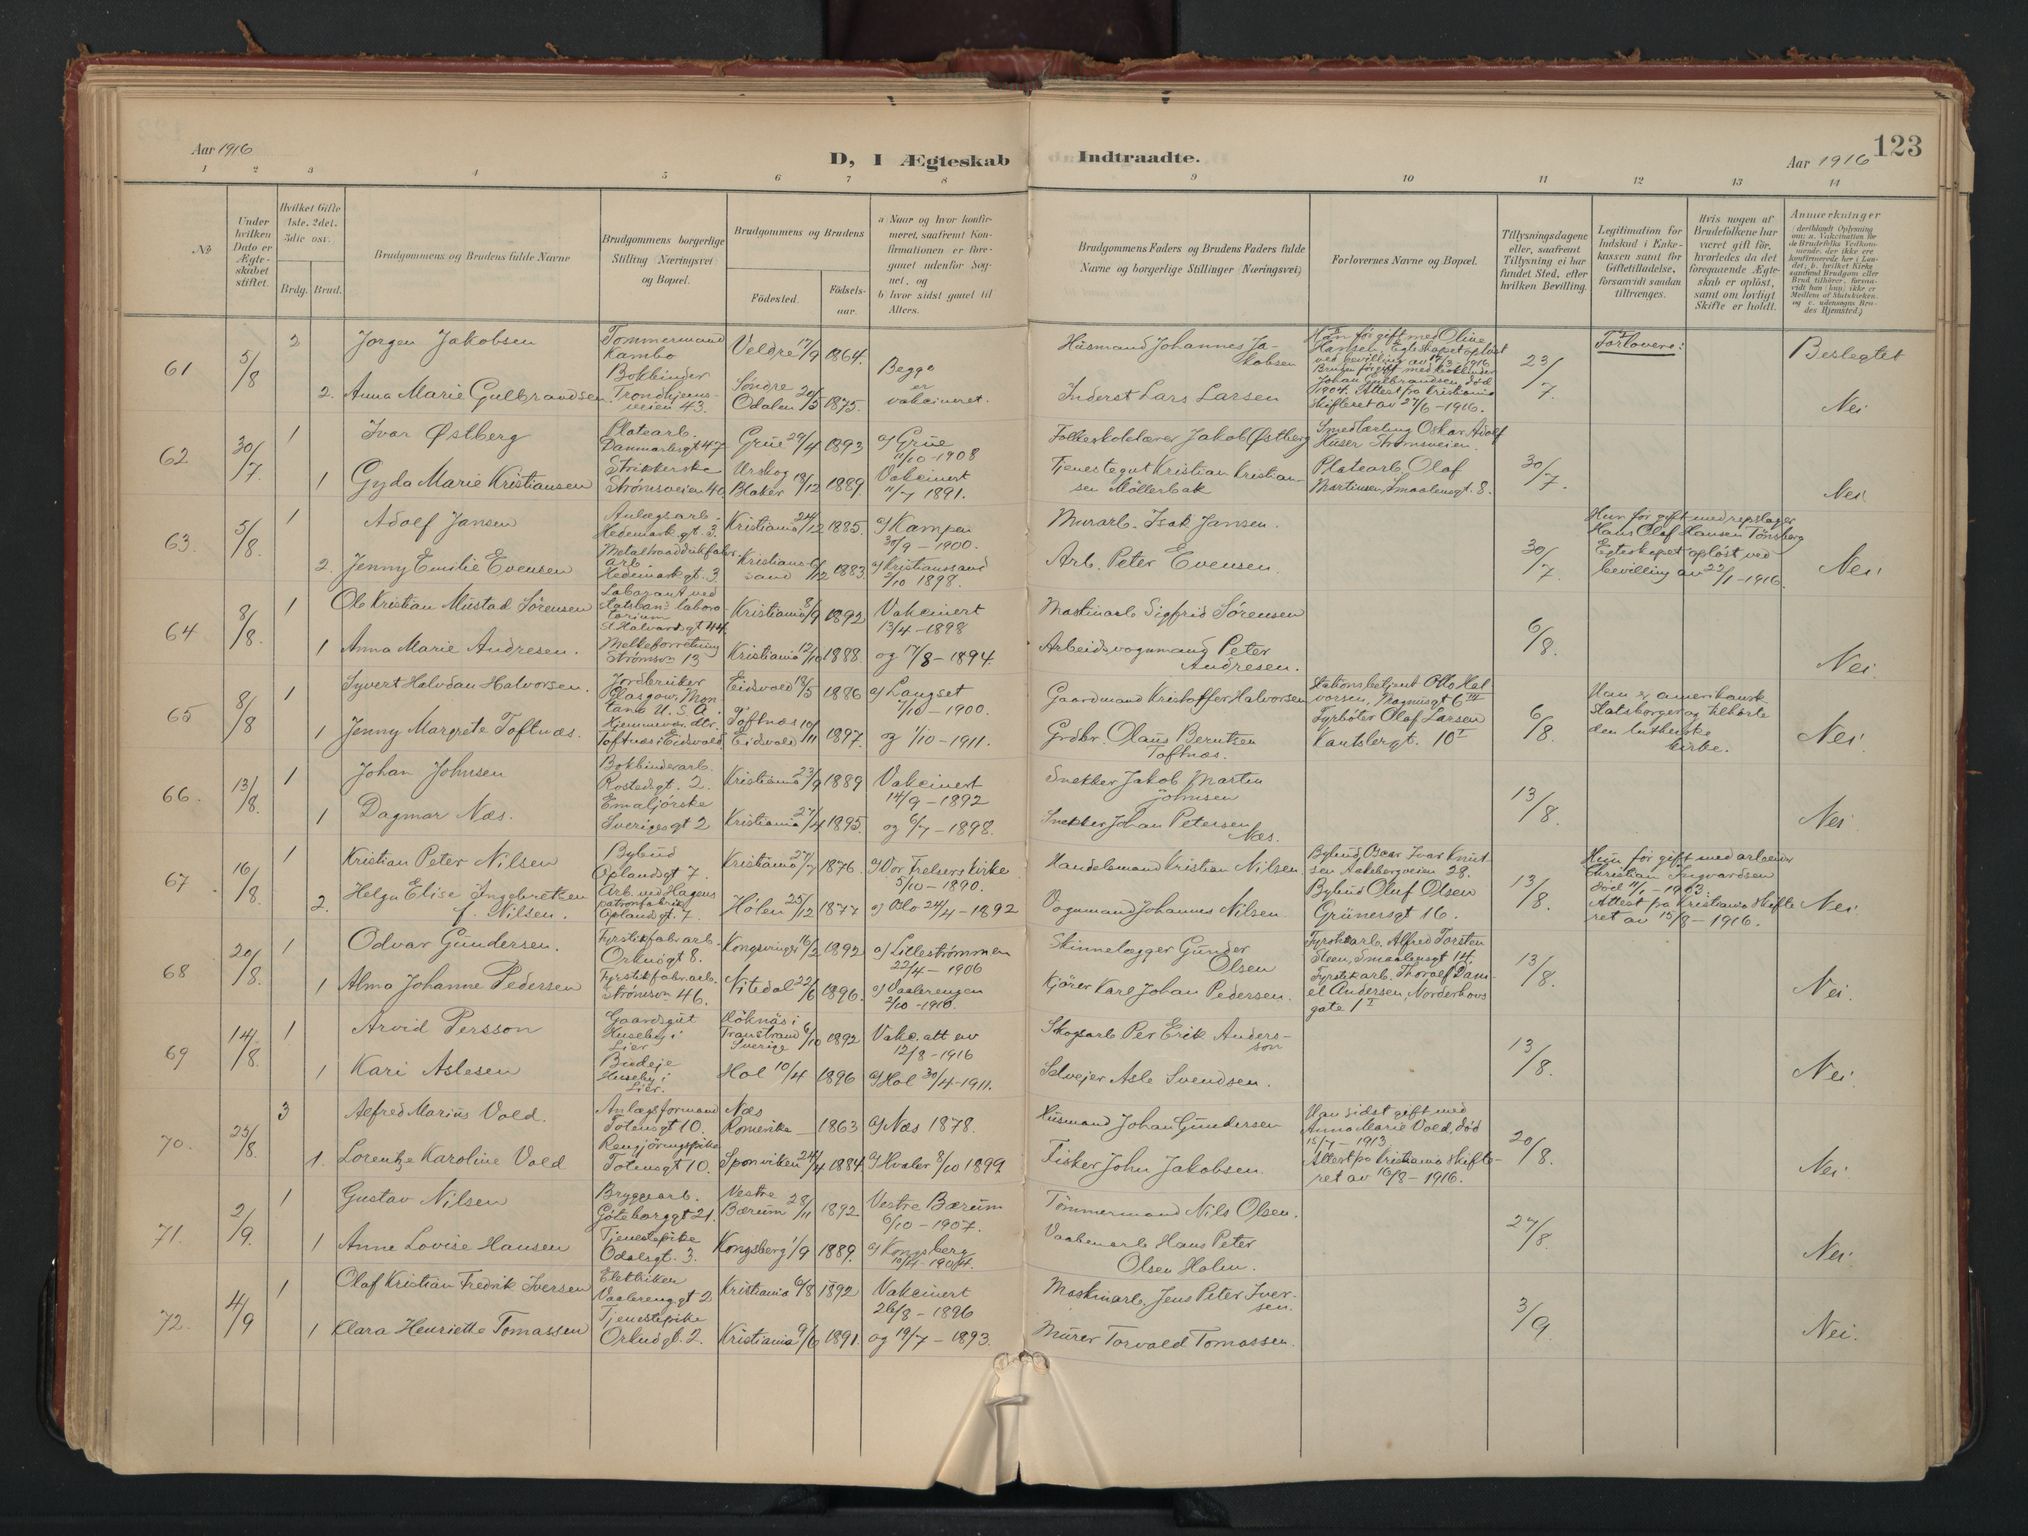 Aar 1916
D, I Ægteskab Indtraadte.
Aar 1916
123
1 2 3 4 5 6 7 8 9 10 11 12 13 14
No
Under hvilken Dato er Ægteskabet stiftet.
Hvilket Gifte 1ste. 2det. 3die osv.
Brdg. Brud.
Brudgommens og Brudens fulde Navne
Brudgommens borgerlige Stilling Næringsvei og Bopæl.
Brudgommens og Brudens
Fødested.
Fødselsaar.
a Naar og hvor konfirmeret, saafremt Konfirmationen er foregaaet udenfor Sognet, og
b hvor sidst gaaet til Alters.
Brudgommens Faders og Brudens Faders fulde Navne og borgerlige Stillinger Næringsvei)
Forlovernes Navne og Bopæl.
Tillysningsdagene eller, saafremt Tillysning ei har fundet Sted, efter hvilken Bevilling.
Legitimation for Indskud i Enkekassen samt for Giftetilladelse, forsaavidt saadan tiltrænges.
Hvis nogen af Brudefolkene har været gift før, hvorledes da det foregaaende Ægteskab er opløst, samt om lovligt Skifte er holdt.
Anmærkninger
61 5/8 2 Jørgen Jakobsen Tømmermand Kambo Veldre 17/9 1864. Begge er vakcineret. Husmand Johannes Jakobsen Han før gift med Oline Hansen. Egteskapet opløst ved bevilling av 14/3-1916. 23/7 Forlovere: Beslegtet
2. Anna Marie Gulbrandsen. Bokbinder Trondhjemsveien 43. Søndre Odalen 20/5 1875. Inderst Lars Larsen Bruden før gift med bokbinder Johan Gulbrandsen, død 1904. Attest fra Kristiania skifteret av 27/6-1916. Nei
62 30/7 1 Ivar Østberg Platearb. Danmarksgt 47 Grue 29/4 1893 a) Grue 11/10-1908 Folkeskolelærer Jakob Østberg Smedlærling Oskar Adolf Huser Strømsveien 30/7
1 Gyda Marie Kristiansen Strikkerske Strømsveien 40 Urskog Blaker 18/12 1889. Vakcinert 11/7 1891. Tjenestegut Kristian Kristiansen Möllerbak Platearb. Olaf Martinsen, Smaalensgt. 8. Nei
63. 5/8. 1 Adolf Jansen Anlægsarb. Hedemarkgt. 3. Kristiania 24/12 1885. a) Kampen 30/9-1900. Murarb. Isak Jansen. 30/7 Hun før gift med repslager Hans Olaf Hansen Tønsberg Egteskapet opløst ved bevilling av 22/1-1916.
2. Jenny Emilie Evensen arb. Hedemarkgt. 3 Kristianssand 6/12 1883. a) Kristianssand 2/10 1898. Arb. Peter Evensen. Nei
64 8/8. 1 Ole Kristian Mustad Sørensen Laborant ved statsban. laboratorium St Halvardsgt 44. Kristiania 8/9 1892 Vakcinert 13/4-1898 Maskinarb Sigfrid Sørensen 6/8.
1 Anna Marie Andresen. Melkeforretning Strømsv 13 Kristiania 12/10 1888. og 17/8-1894. Arbeidsvognmand Peter Andresen. Nei
65 8/8 1 Syvert Halvdan Halvorsen. Jordbruker Glasgow, Montana U.S.A. Eidsvold 18/5 1886 a) Langset 7/10-1900. Gaardmand Kristoffer Halvorsen Stationsbetjent Otto Halvorsen, Magnusgt 6 III 6/8. Han er amerikansk statsborger og tilhørte den lutherske kirke.
1 Jenny Margrete Toftnæs. Hjemmevær. dtr. Toftnæs i Eidsvold Toftnæs Eidsvold 10/11 1897. og 1/10-1911. Grdbr. Olaus Berntsen Toftnæs. Fyrbøter Olaf Larsen Kantsbergt. 10 I Nei
66. 13/8. 1 Johan Johnsen Bokbinderarb. Rostedsgt. 2. Kristiania 23/9 1889 Vakcinert 14/9-1892 Snekker Jakob Martin Johnsen 13/8.
1 Dagmar Næs. Emaljørske Sverigesgt 2 Kristiania 27/4 1895. og 6/7-1898. Snekker Johan Petersen Næs. Nei
67 16/8. 1 Kristian Peter Nilsen Bybud Oplandsgt 7. Kristiania 27/7 1876. a) Vor Frelsers kirke 5/10-1890. Handelsmand Kristian Nilsen, Bybud Oscar Ivar Knutsen Aakebergveien 28. 13/8. Hun før gift med arbeider Christian Ingvardsen død 11/1-1903. Attest fra Kristiania skifteret av 15/8-1916.
2. Helga Elise Ingebretsen f. Nilsen. Arb. ved Hagens patronfabrik Oplandgt. 7. Hølen 25/12 1877 a) Oslo 24/4-1892 Vognmand Johannes Nilsen. Bybud Oluf Olsen Grünersgt 16. Nei
68 20/8. 1 Odvar Gundersen. Fyrstikfabr arb. Orknøgt 8. Kongsvinger 16/2 1892 a) Lillestrømmen 22/4-1906 Skinnelægger Gunder Olsen Fyrstikarb. Alfred Torsten Steen, Smaalensgt 14. 13/8.
1 Alma Johanne Pedersen Fyrstikfabr arb. Strømsv 46. Nitedal 22/6 1896. a) Vaalerengen 2/10-1910. Kjører Karl Johan Pedersen. Fyrstikarb. Thoralf Daniel Andersen, Norderhovsgate 1 I Nei.
69 14/8. 1 Arvid Persson Gaardsgut Huseby i Lier Höknäs i Transtrand Sverige 6/10 1892 Vakc. att av 12/8-1916 Skogsarb Per Erik Andersson 13/8.
1 Kari Aslesen Budeje Huseby i Lier. Hol 10/4 1896 a) Hol 30/4-1911. Selvejer Asle Svendsen. Nei
70. 25/8. 3 Alfred Marius Vold. Anlægsformand Totensgt 10. Næs Romerike 1863 a) Næs 1878. Husmand Johan Gundersen Han sidst gift med Anna Marie Vold, død 15/7-1913. Attest fra Kristiania skifteret av 16/8-1916. 20/8.
1. Lorentze Karoline Vold Rengjøringspike Totensgt 10. Sponviken 24/4 1884 a) Hvaler 8/10 1899 Fisker John Jakobsen. Nei
71. 2/9. 1 Gustav Nilsen Bryggearb. Göteborggt 21. Vestre Bærum 28/11 1892 Vestre Bærum 6/10-1907. Tømmermand Nils Olsen. 27/8.
1 Anne Lovise Hansen Tjenestepike Odalsgt. 3. Kongsberg 1/9 1889. a) Kongsberg 10/4-1904. Vaabenarb Hans Peter Olsen Holm. Nei
72. 4/9 1 Olaf Kristian Fredrik Iversen Elektriker Vaalerenggt 2 Kristiania 6/8 1892 Vakcinert 26/8-1896 Maskinarb. Jens Peter Iversen. 3/9.
1 Clara Henriette Tomassen Tjenestepike Orknøgt. 2. Kristiania 9/6 1891. og 19/7-1893. Murer Torvald Tomassen. Nei.